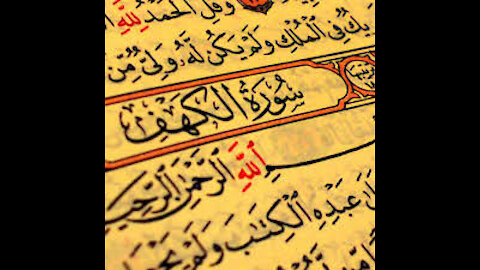 وَقُلِ الْحَمْدُ لِلَّهِ
فِي الْمُلْكِ وَلَمْ يَكُن لَّهُ وَلِيٌّ مِّنَ
سُورَةُ الْكَهْفِ
اللَّهِ الرَّحْمَٰنِ الرَّحِيمِ
عَبْدِهِ الْكِتَٰبَ وَلَمْ